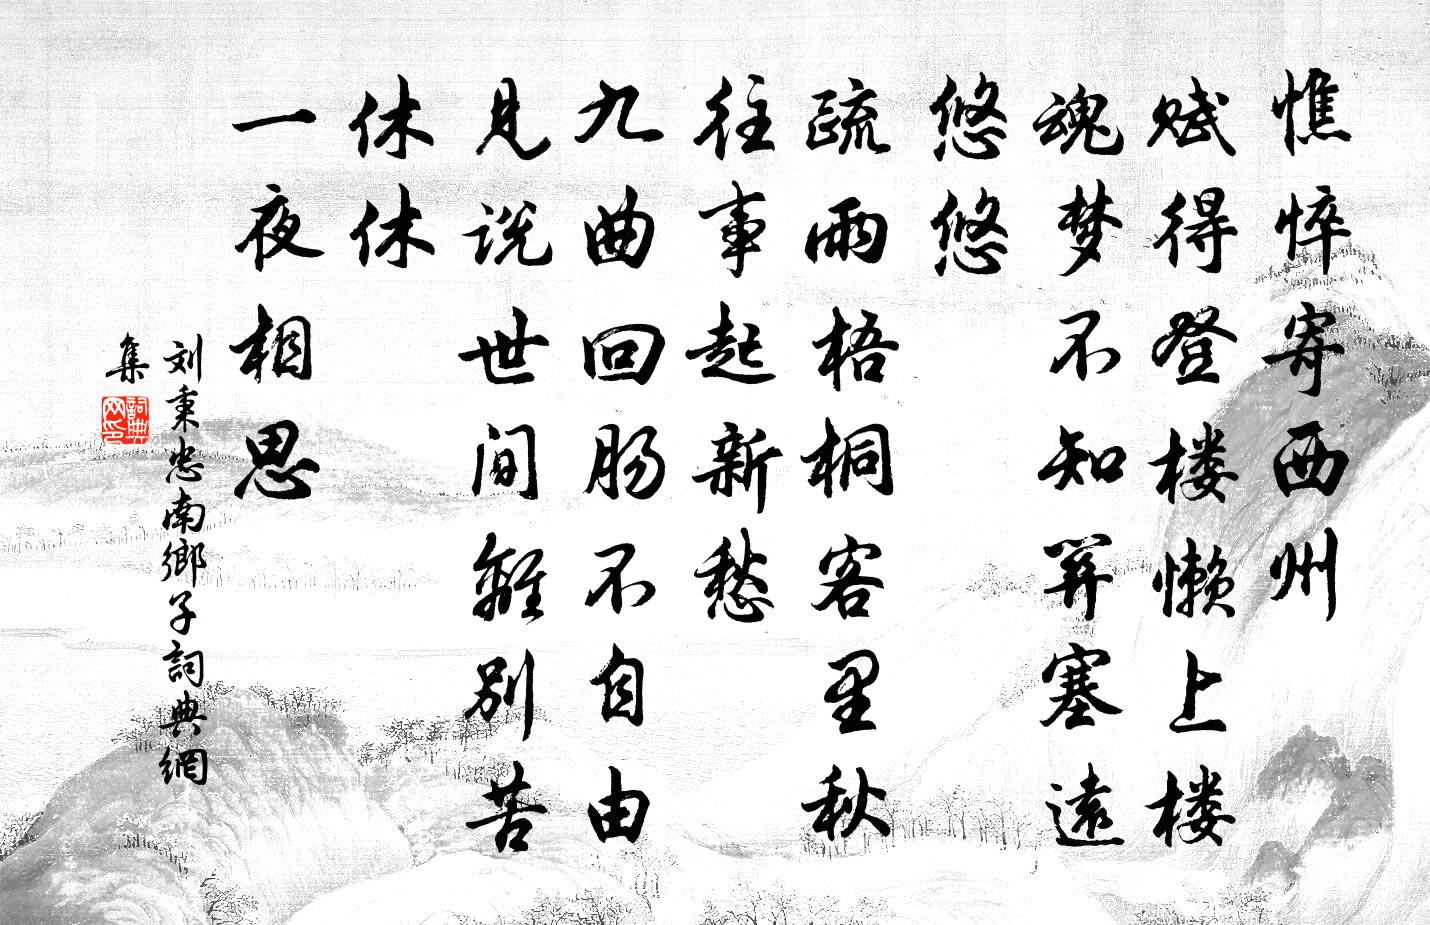 憔悴寄西州
赋得登楼懒上楼
魂梦不知关塞远
悠悠
疏雨梧桐客里秋
往事起新愁
九曲回肠不自由
见说世间离别苦
休休
一夜相思
刘秉忠南鄉子詞典網
集
詞典
网印